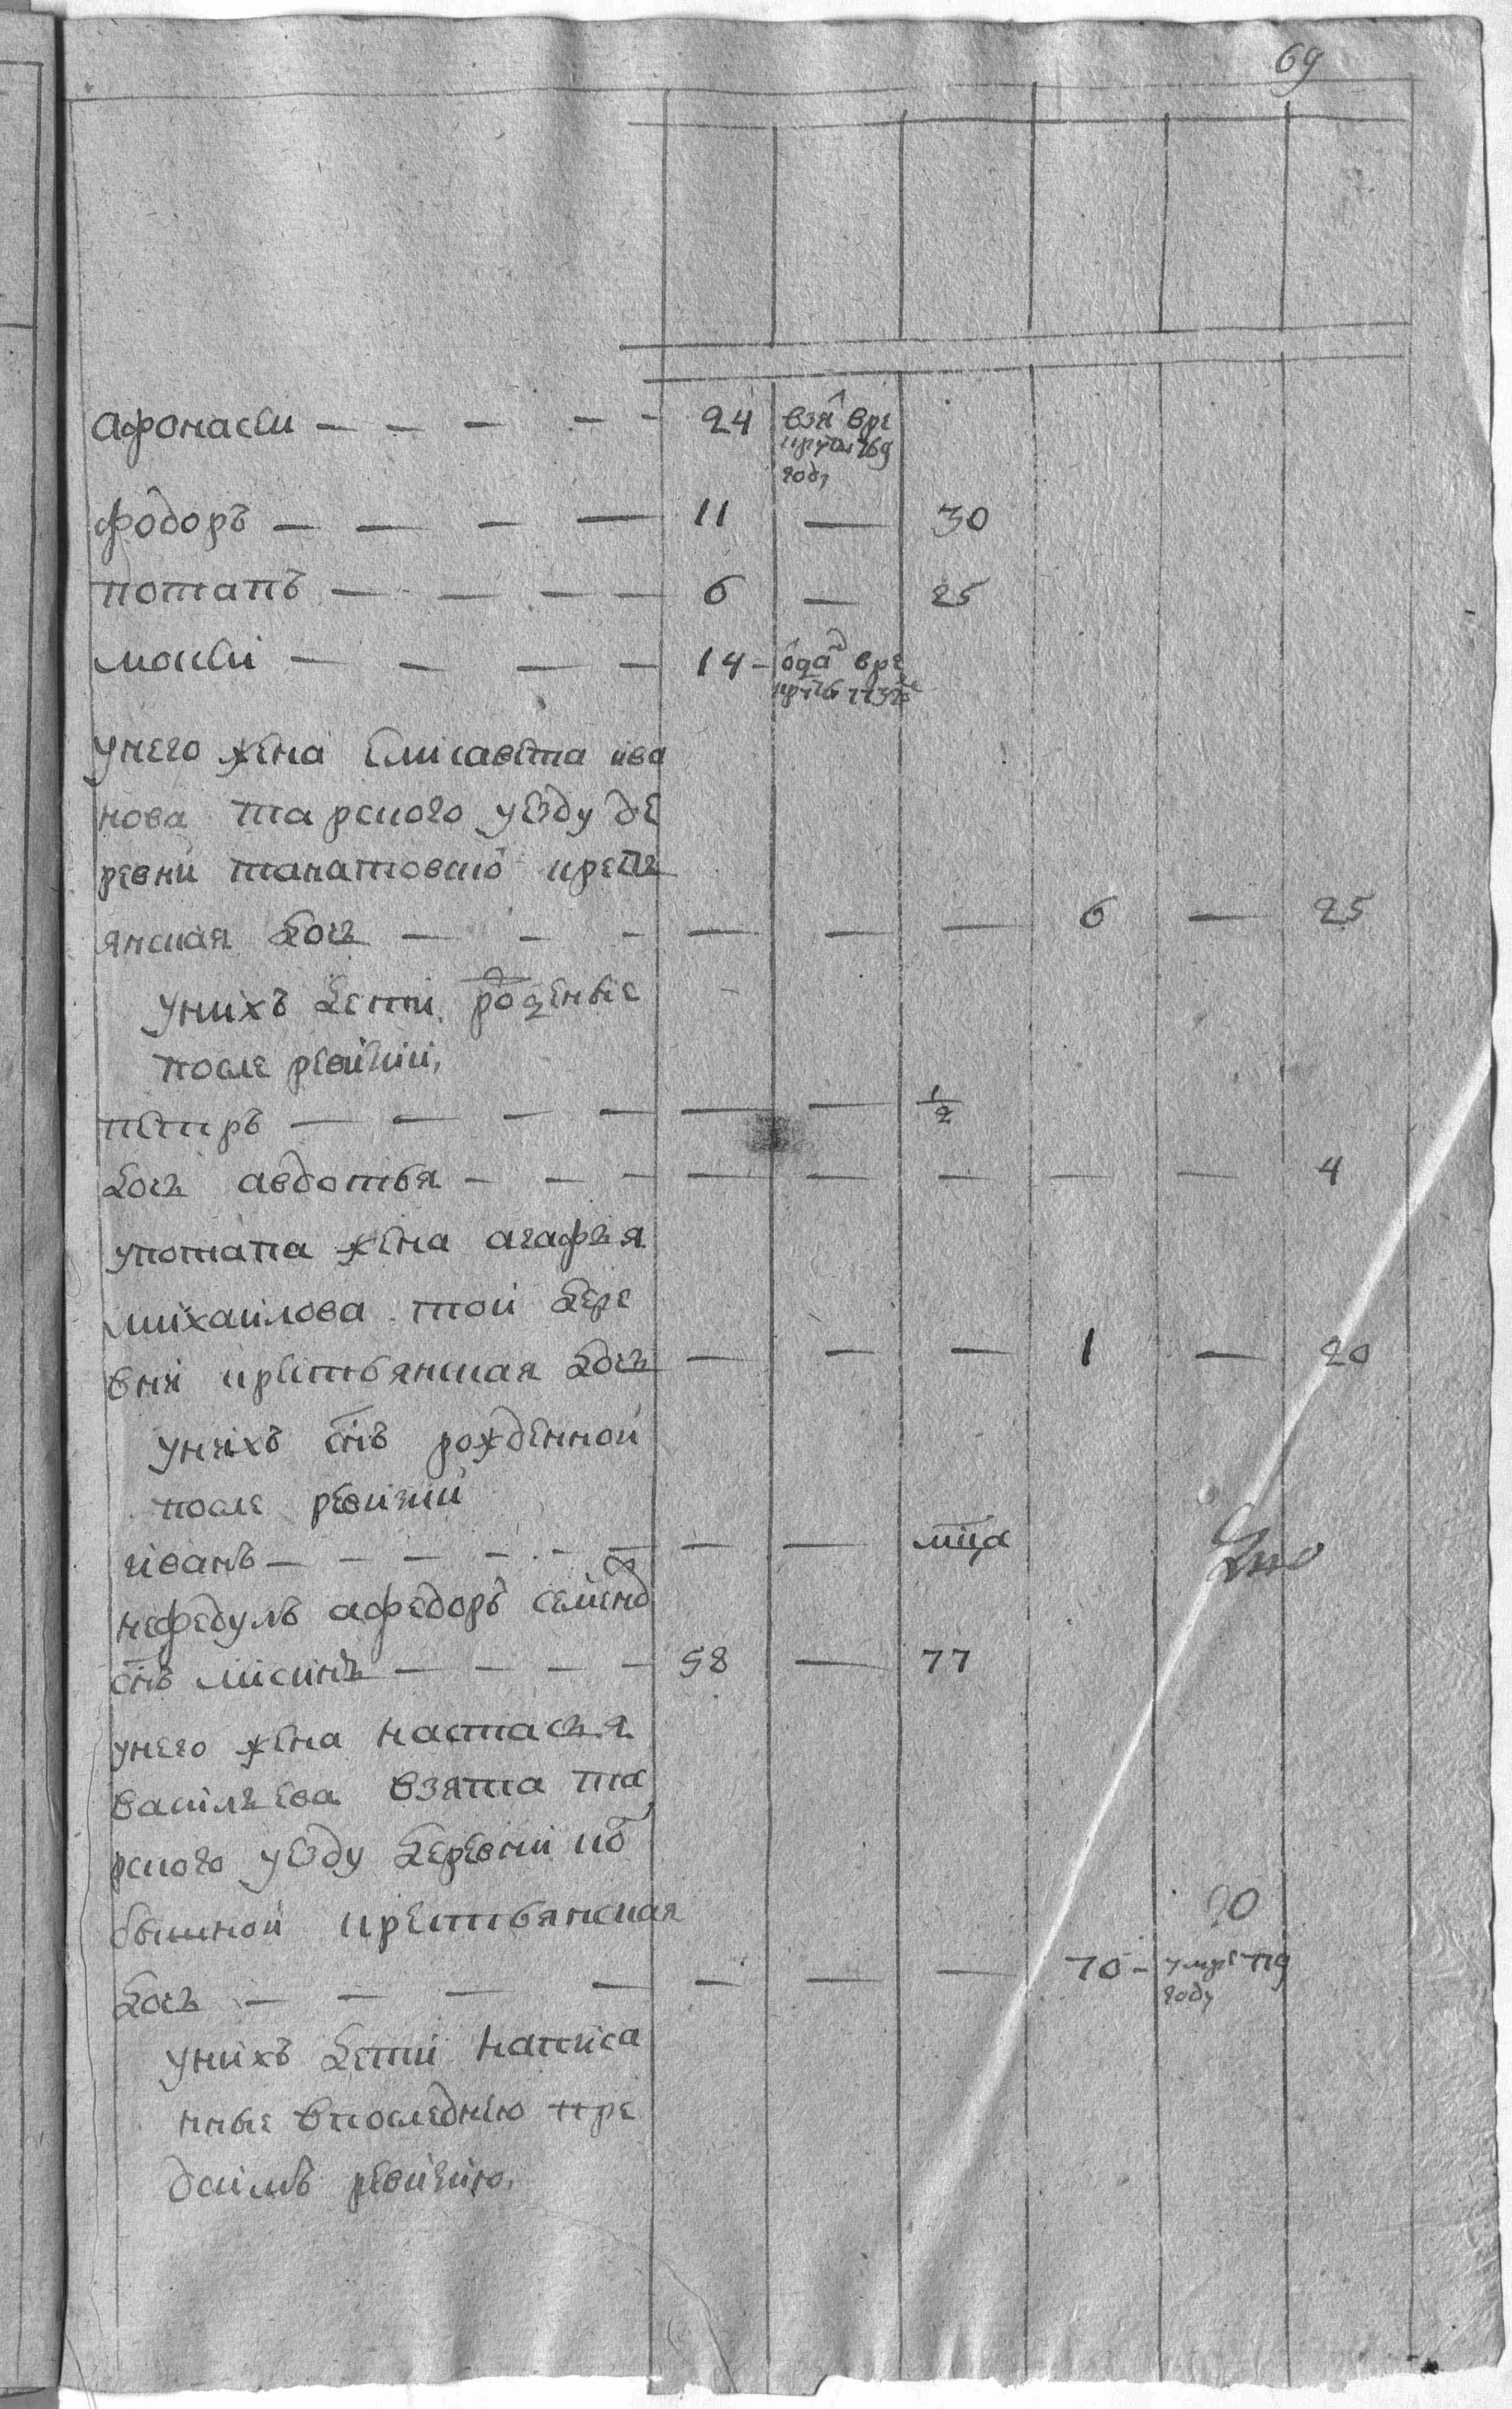 69
Афонасеи — — — — — 24 взя вре
крути 769
году
Фодоръ — — — — 11 — 30
Потапъ — — — — 6 — 25
Моисеи — — — — 14 — ѡда вре
крут
унего жена Елисавета ива
нова тарского уезду де
ревни танатовско крестъ
янская дочь — — — — — — 6 — 25
унихъ дети рожденые
после ревизии,
Петръ — — — — — — 1/2
дочь авдотья — — — — — — — — 4
употапа жена агафья
михаилова той дере
вни крестьянская дочь — — — 1 — 20
унихъ снъ рожденной
после ревизии
иванъ — — — — — — — — мца
нефедулъ афедоръ семенд
снъ лисинъ — — — — 58 — 77
унего жена настасья
василъева взята та
рского уезду деревни ко
бышной крестьянская 90
дочь — — — — — — — 70 — умре 779
году
унихъ дети написа
нные впоследнию пре
доимъ ревизию.